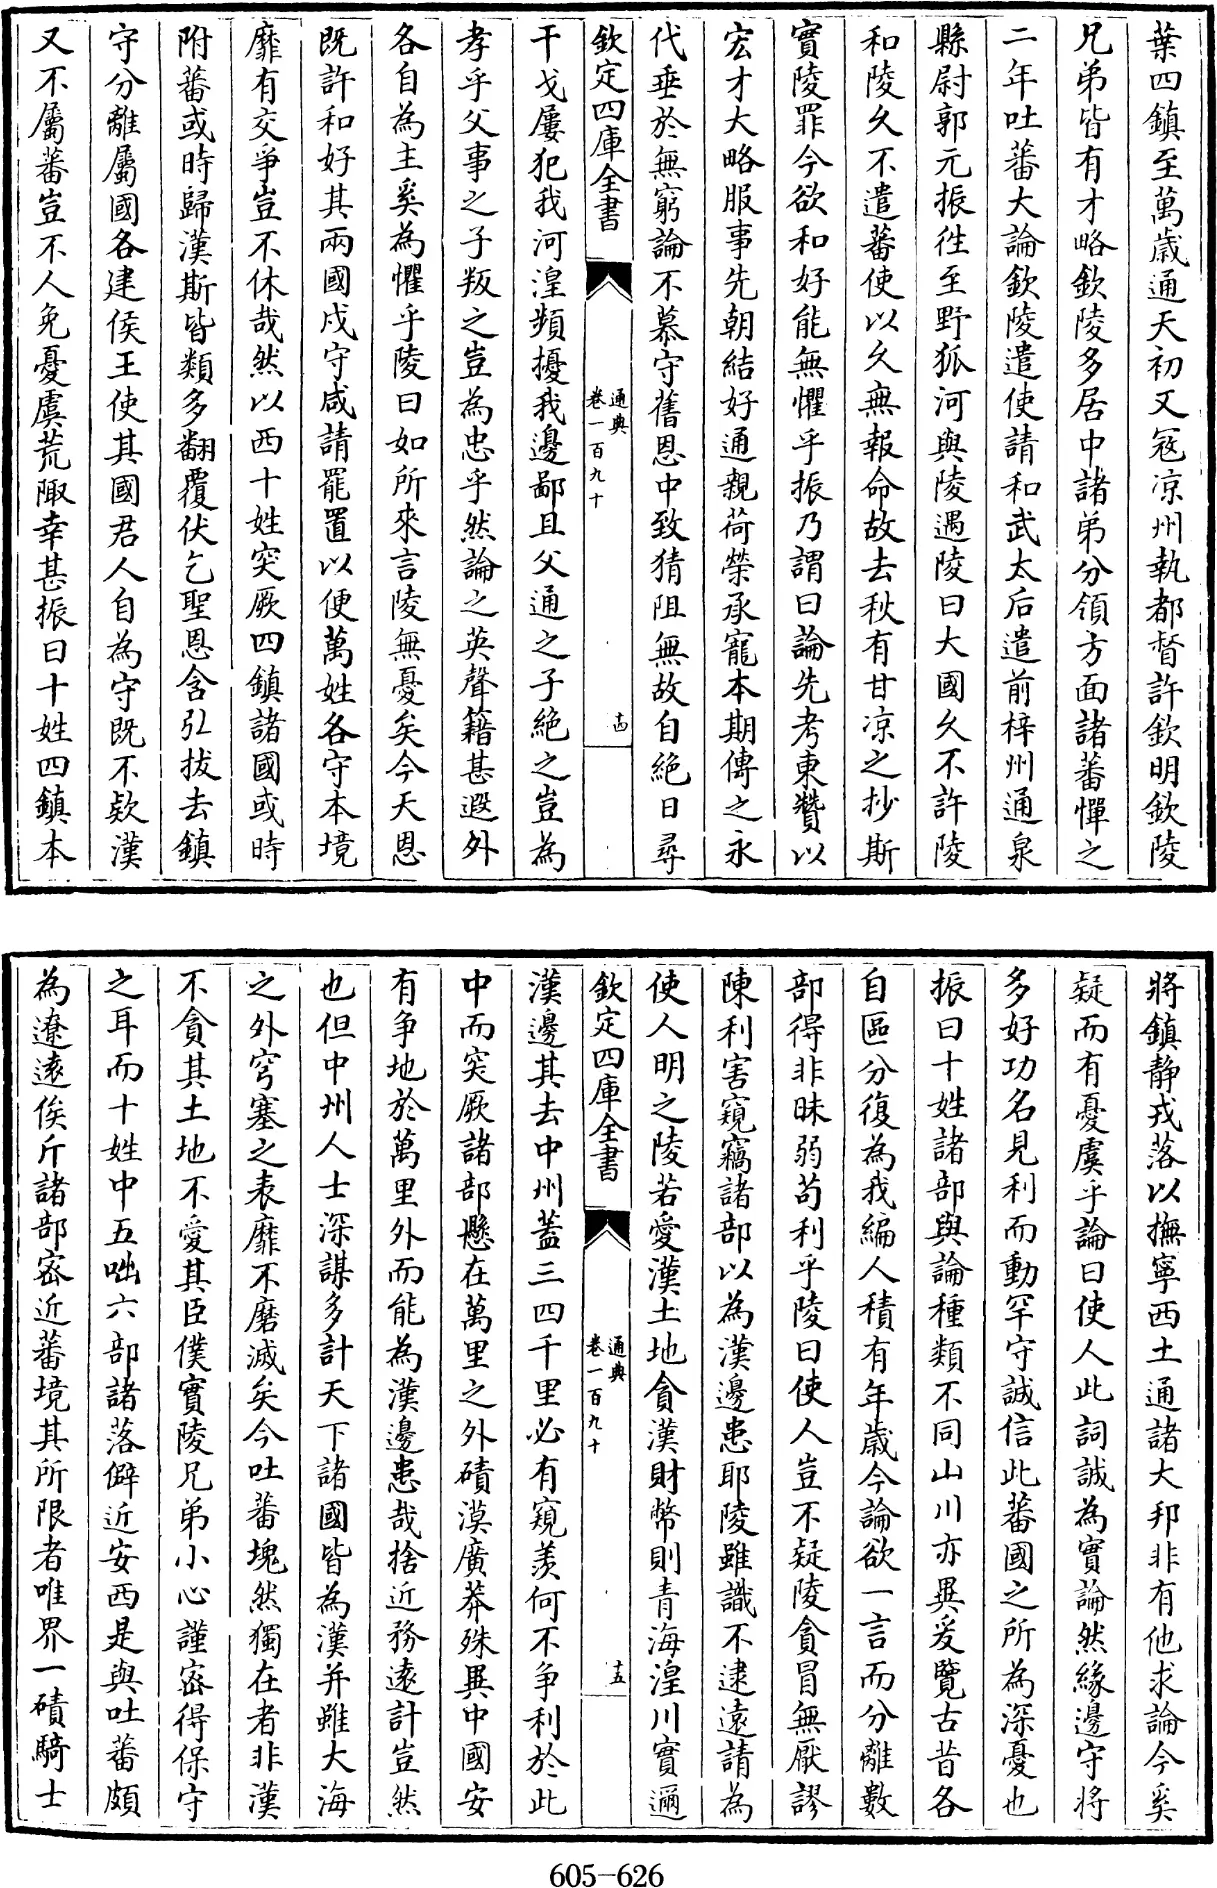 葉四鎮至萬歲通天初又寇凉州執都督許欽明欽陵
兄弟皆有才略欽陵多居中諸弟分領方面諸蕃憚之
二年吐蕃大論欽陵遣使請和武太后遣前梓州通泉
縣尉郭元振徃至野狐河與陵遇陵曰大國久不許陵
和陵久不遣蕃使以久無報命故去秋有甘凉之抄斯
實陵罪今欲和好能無懼乎振乃謂曰論先考東贊以
宏才大略服事先朝結好通親荷榮承寵本期傳之永
代垂於無窮論不慕守舊恩中致猜阻無故自絶日尋
欽定四庫全書
通典
卷一百九十
十四
干戈屢犯我河湟頻擾我邊鄙且父通之子絶之豈為
孝乎父事之子叛之豈為忠乎然論之英聲籍甚遐外
各自為主奚為懼乎陵曰如所來言陵無憂矣今天恩
既許和好其兩國戍守咸請罷置以便萬姓各守本境
靡有交爭豈不休哉然以西十姓突厥四鎮諸國或時
附蕃或時歸漢斯皆類多翻覆伏乞聖恩含弘拔去鎮
守分離屬國各建侯王使其國君人自為守既不欵漢
又不屬蕃豈不人免憂虞荒陬幸甚振曰十姓四鎮本
將鎮静戎落以撫寧西土通諸大邦非有他求論今奚
疑而有憂虞乎論曰使人此詞誠為實論然緣邊守將
多好功名見利而動罕守誠信此蕃國之所為深憂也
振曰十姓諸部與論種類不同山川亦異爰覽古昔各
自區分復為我編人積有年歲今論欲一言而分離數
部得非昧弱苟利乎陵曰使人豈不疑陵貪冒無厭謬
陳利害窺竊諸部以為漢邊患耶陵雖識不逮遠請為
使人明之陵若愛漢土地貪漢財幣則青海湟川實邇
欽定四庫全書
通典
卷一百九十
十五
漢邊其去中州蓋三四千里必有窺羨何不争利於此
中而突厥諸部懸在萬里之外磧漠廣莽殊異中國安
有争地於萬里外而能為漢邊患哉捨近務遠計豈然
也但中州人士深謀多計天下諸國皆為漢并雖大海
之外穹塞之表靡不磨滅矣今吐蕃塊然獨在者非漢
不貪其土地不愛其臣僕實陵兄弟小心謹密得保守
之耳而十姓中五咄六部諸落僻近安西是與吐蕃頗
為遼遠俟斤諸部密近蕃境其所限者唯界一磧騎士
605-626